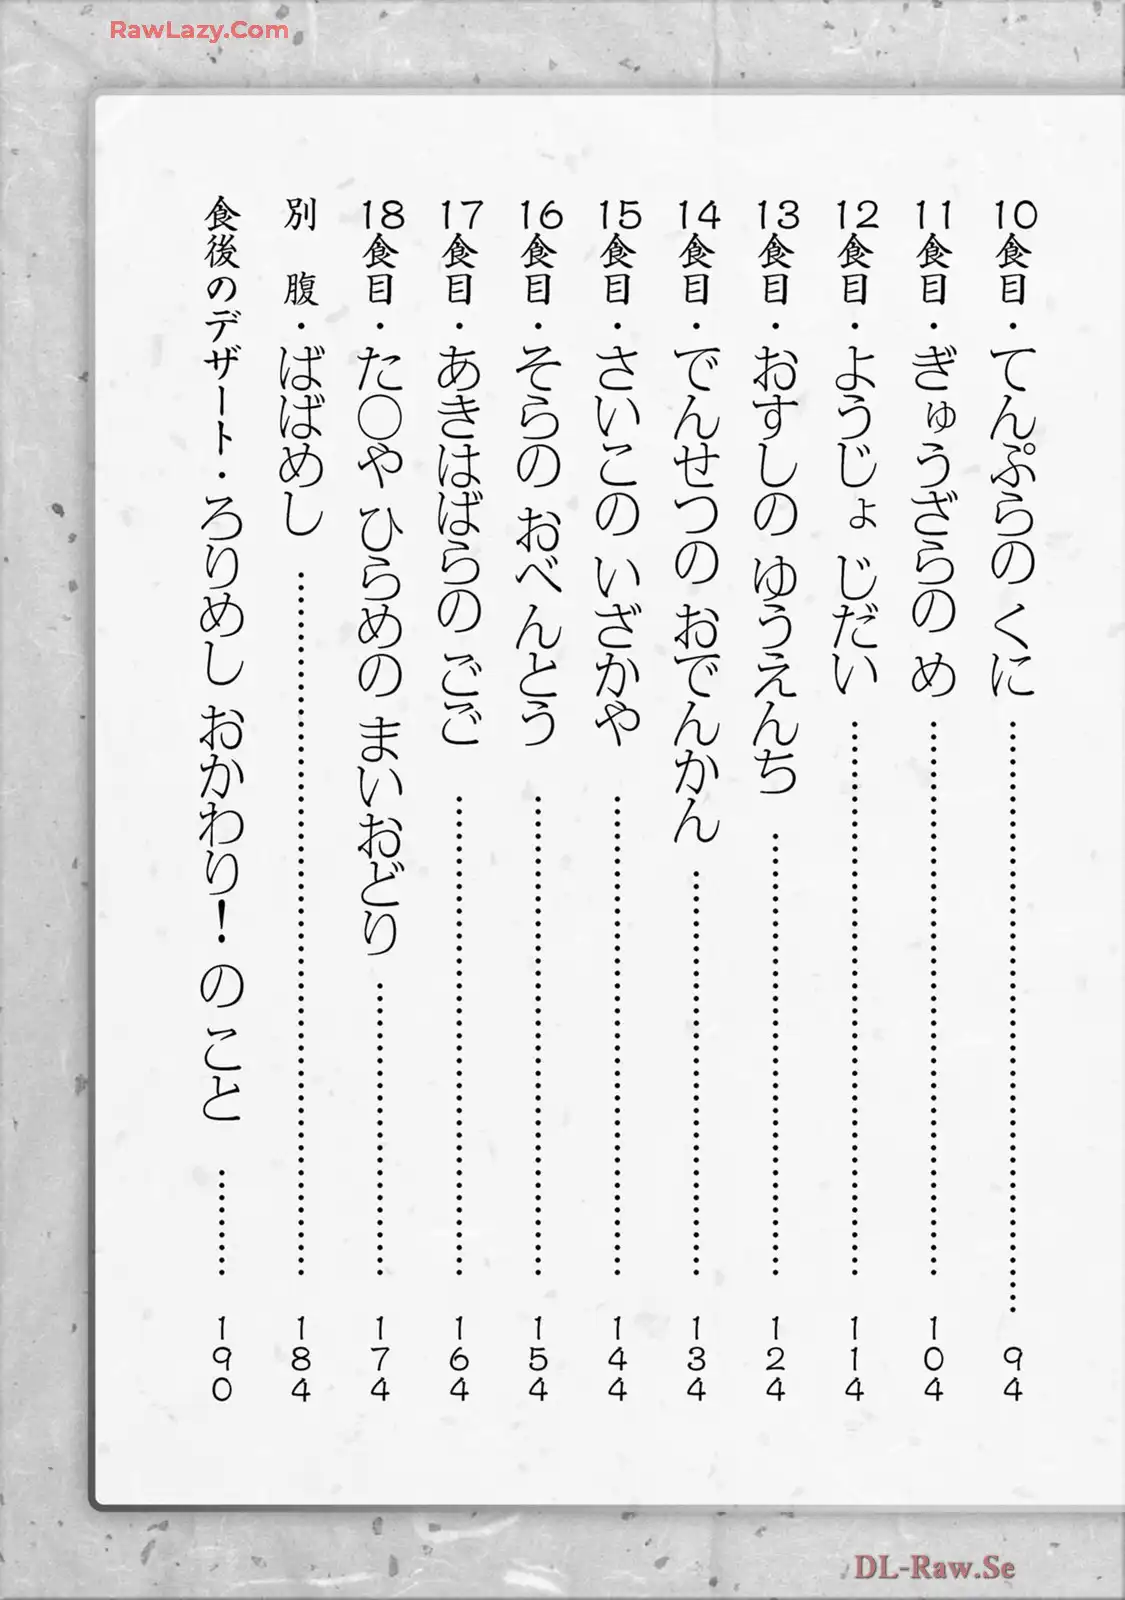 RawLazy.Com
10食目・てんぷらの くに……………………………94
11食目・ぎゅうざらの め……………………………104
12食目・ようじょ じだい……………………………114
13食目・おすしの ゆうえんち……………………………124
14食目・でんせつの おでんかん……………………………134
15食目・さいこの いざかや……………………………144
16食目・そらの おべんとう……………………………154
17食目・あきはばらの ごご……………………………164
18食目・た〇や ひらめの まいおどり……………………………174
別 腹・ばばめし……………………………184
食後のデザート・ろりめし おかわり！ の こと………190
DL-Raw.Se